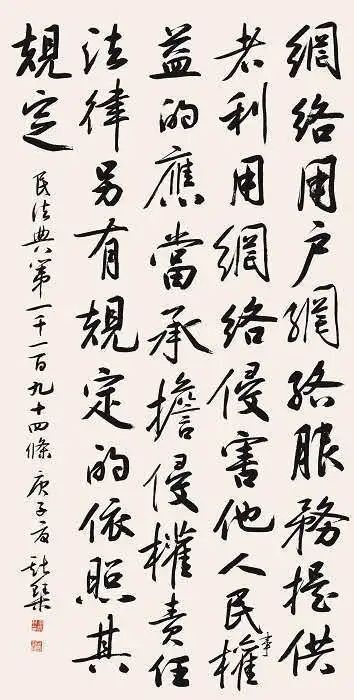 網絡用户網絡服務提供
者利用網絡侵害他人民事權
益的應當承擔侵權責任
法律另有規定的依照其
規定
民法典第一千一百九十四條 庚子夏